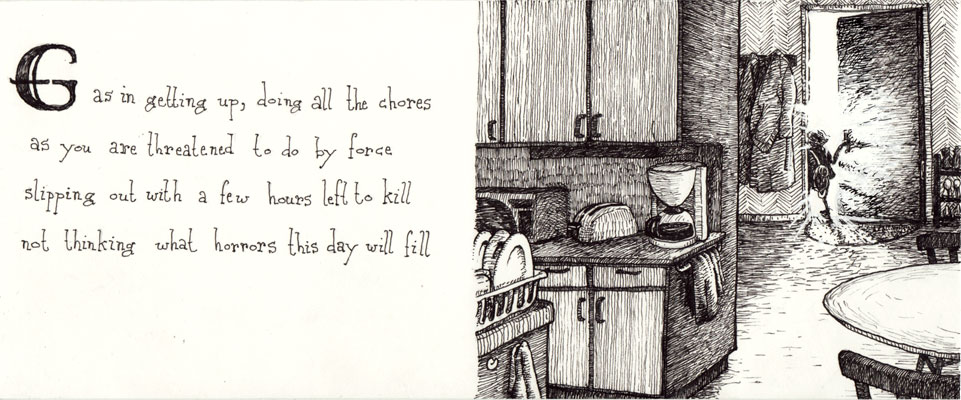 G as in getting up, doing all the chores
as you are threatened to do by force
slipping out with a few hours left to kill
not thinking what horrors this day will fill